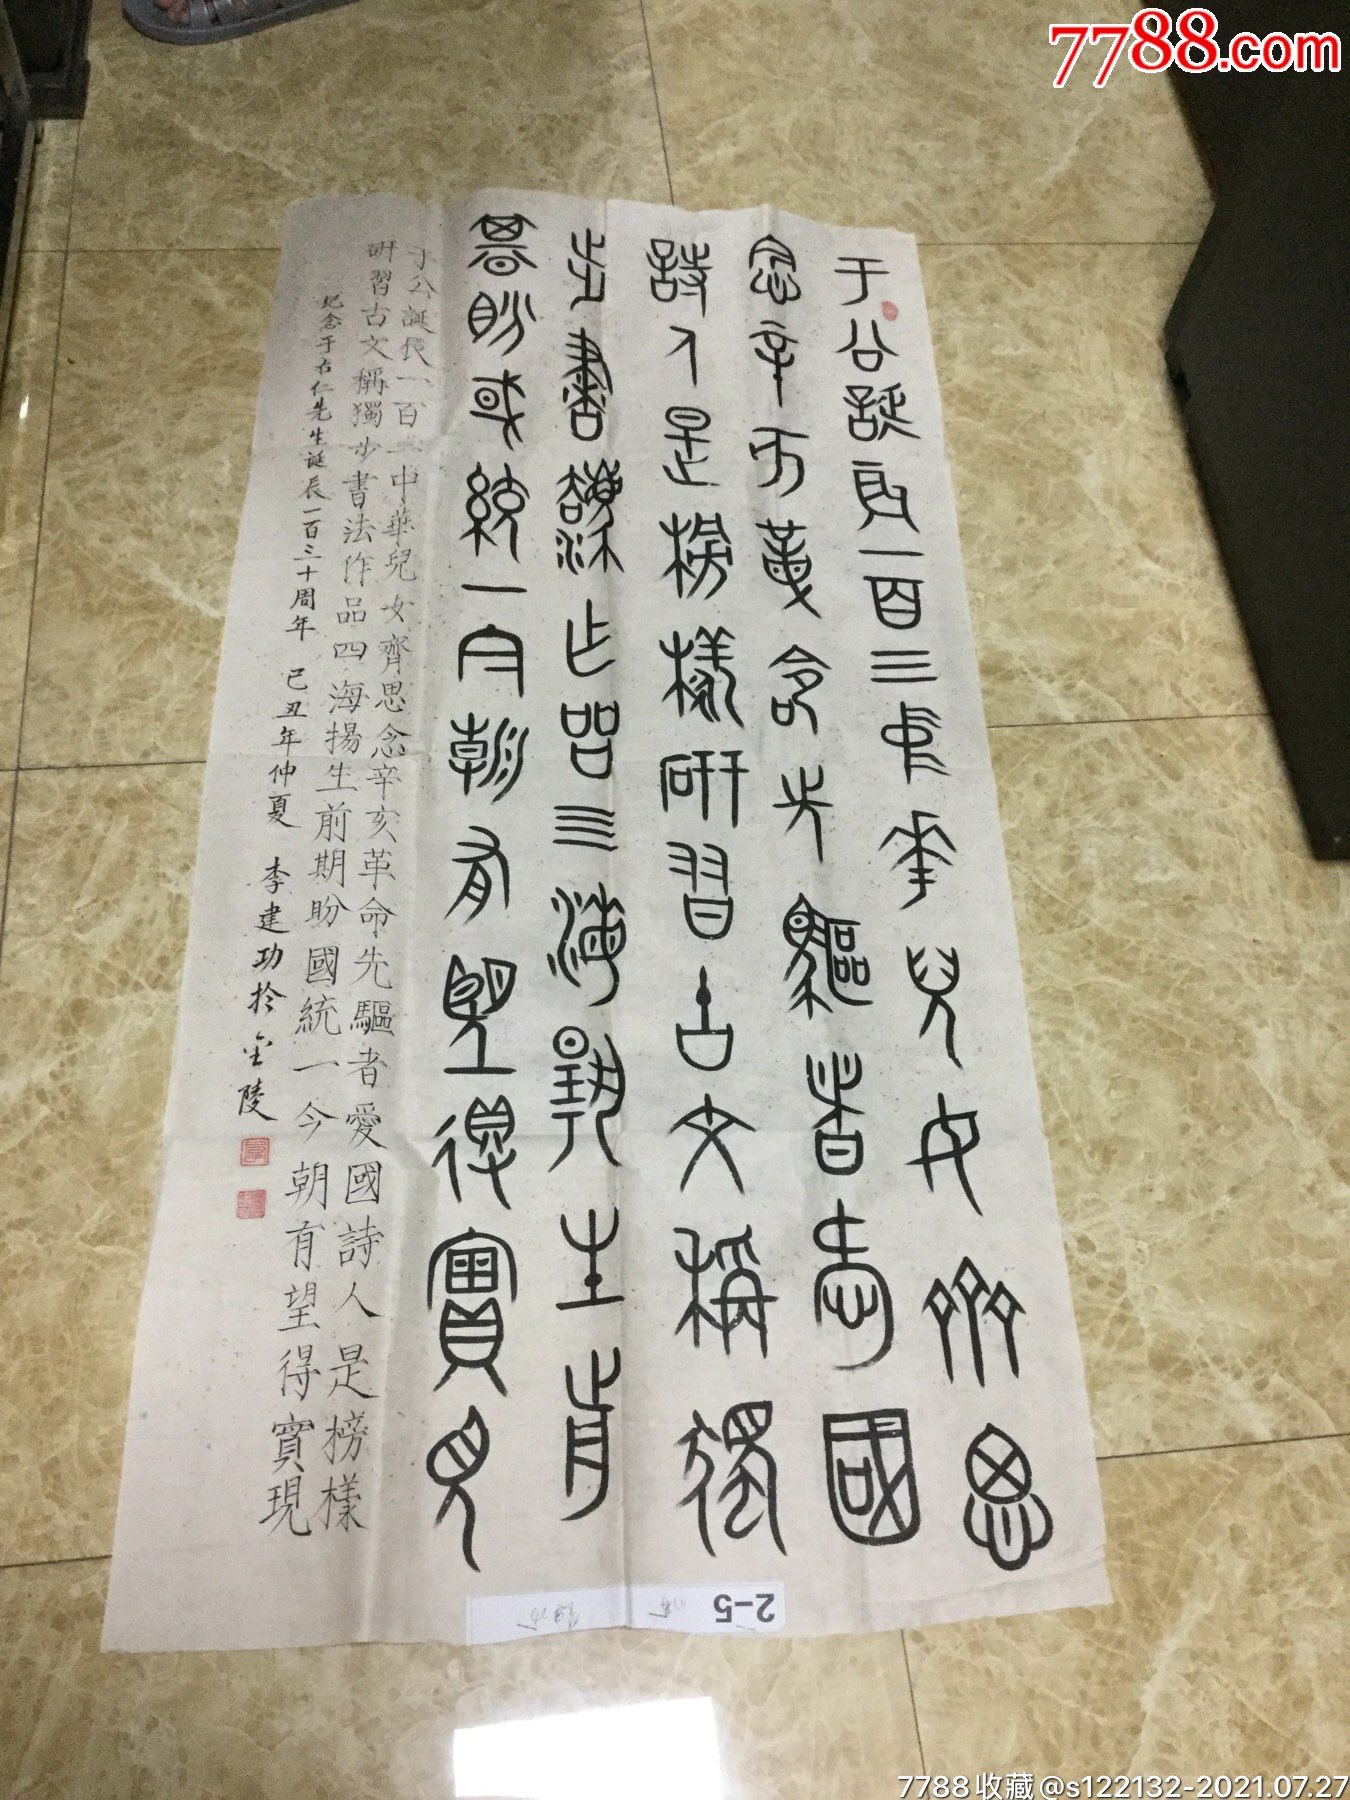 7788.com
于公誕辰一百三中華兒女齊思
念辛亥革命先驅者愛國
詩人是榜樣研習古文稱獨
步書法作品四海揚生前
期盼國統一今朝有望得實現
于公誕辰一百三中華兒女齊思念辛亥革命先驅者愛國詩人是榜樣
研習古文稱獨步書法作品四海揚生前期盼國統一今朝有望得實現
紀念于右仁先生誕辰一百三十周年 己丑年仲夏 李建功於金陵
2-5
7788收藏@s122132-2021.07.27